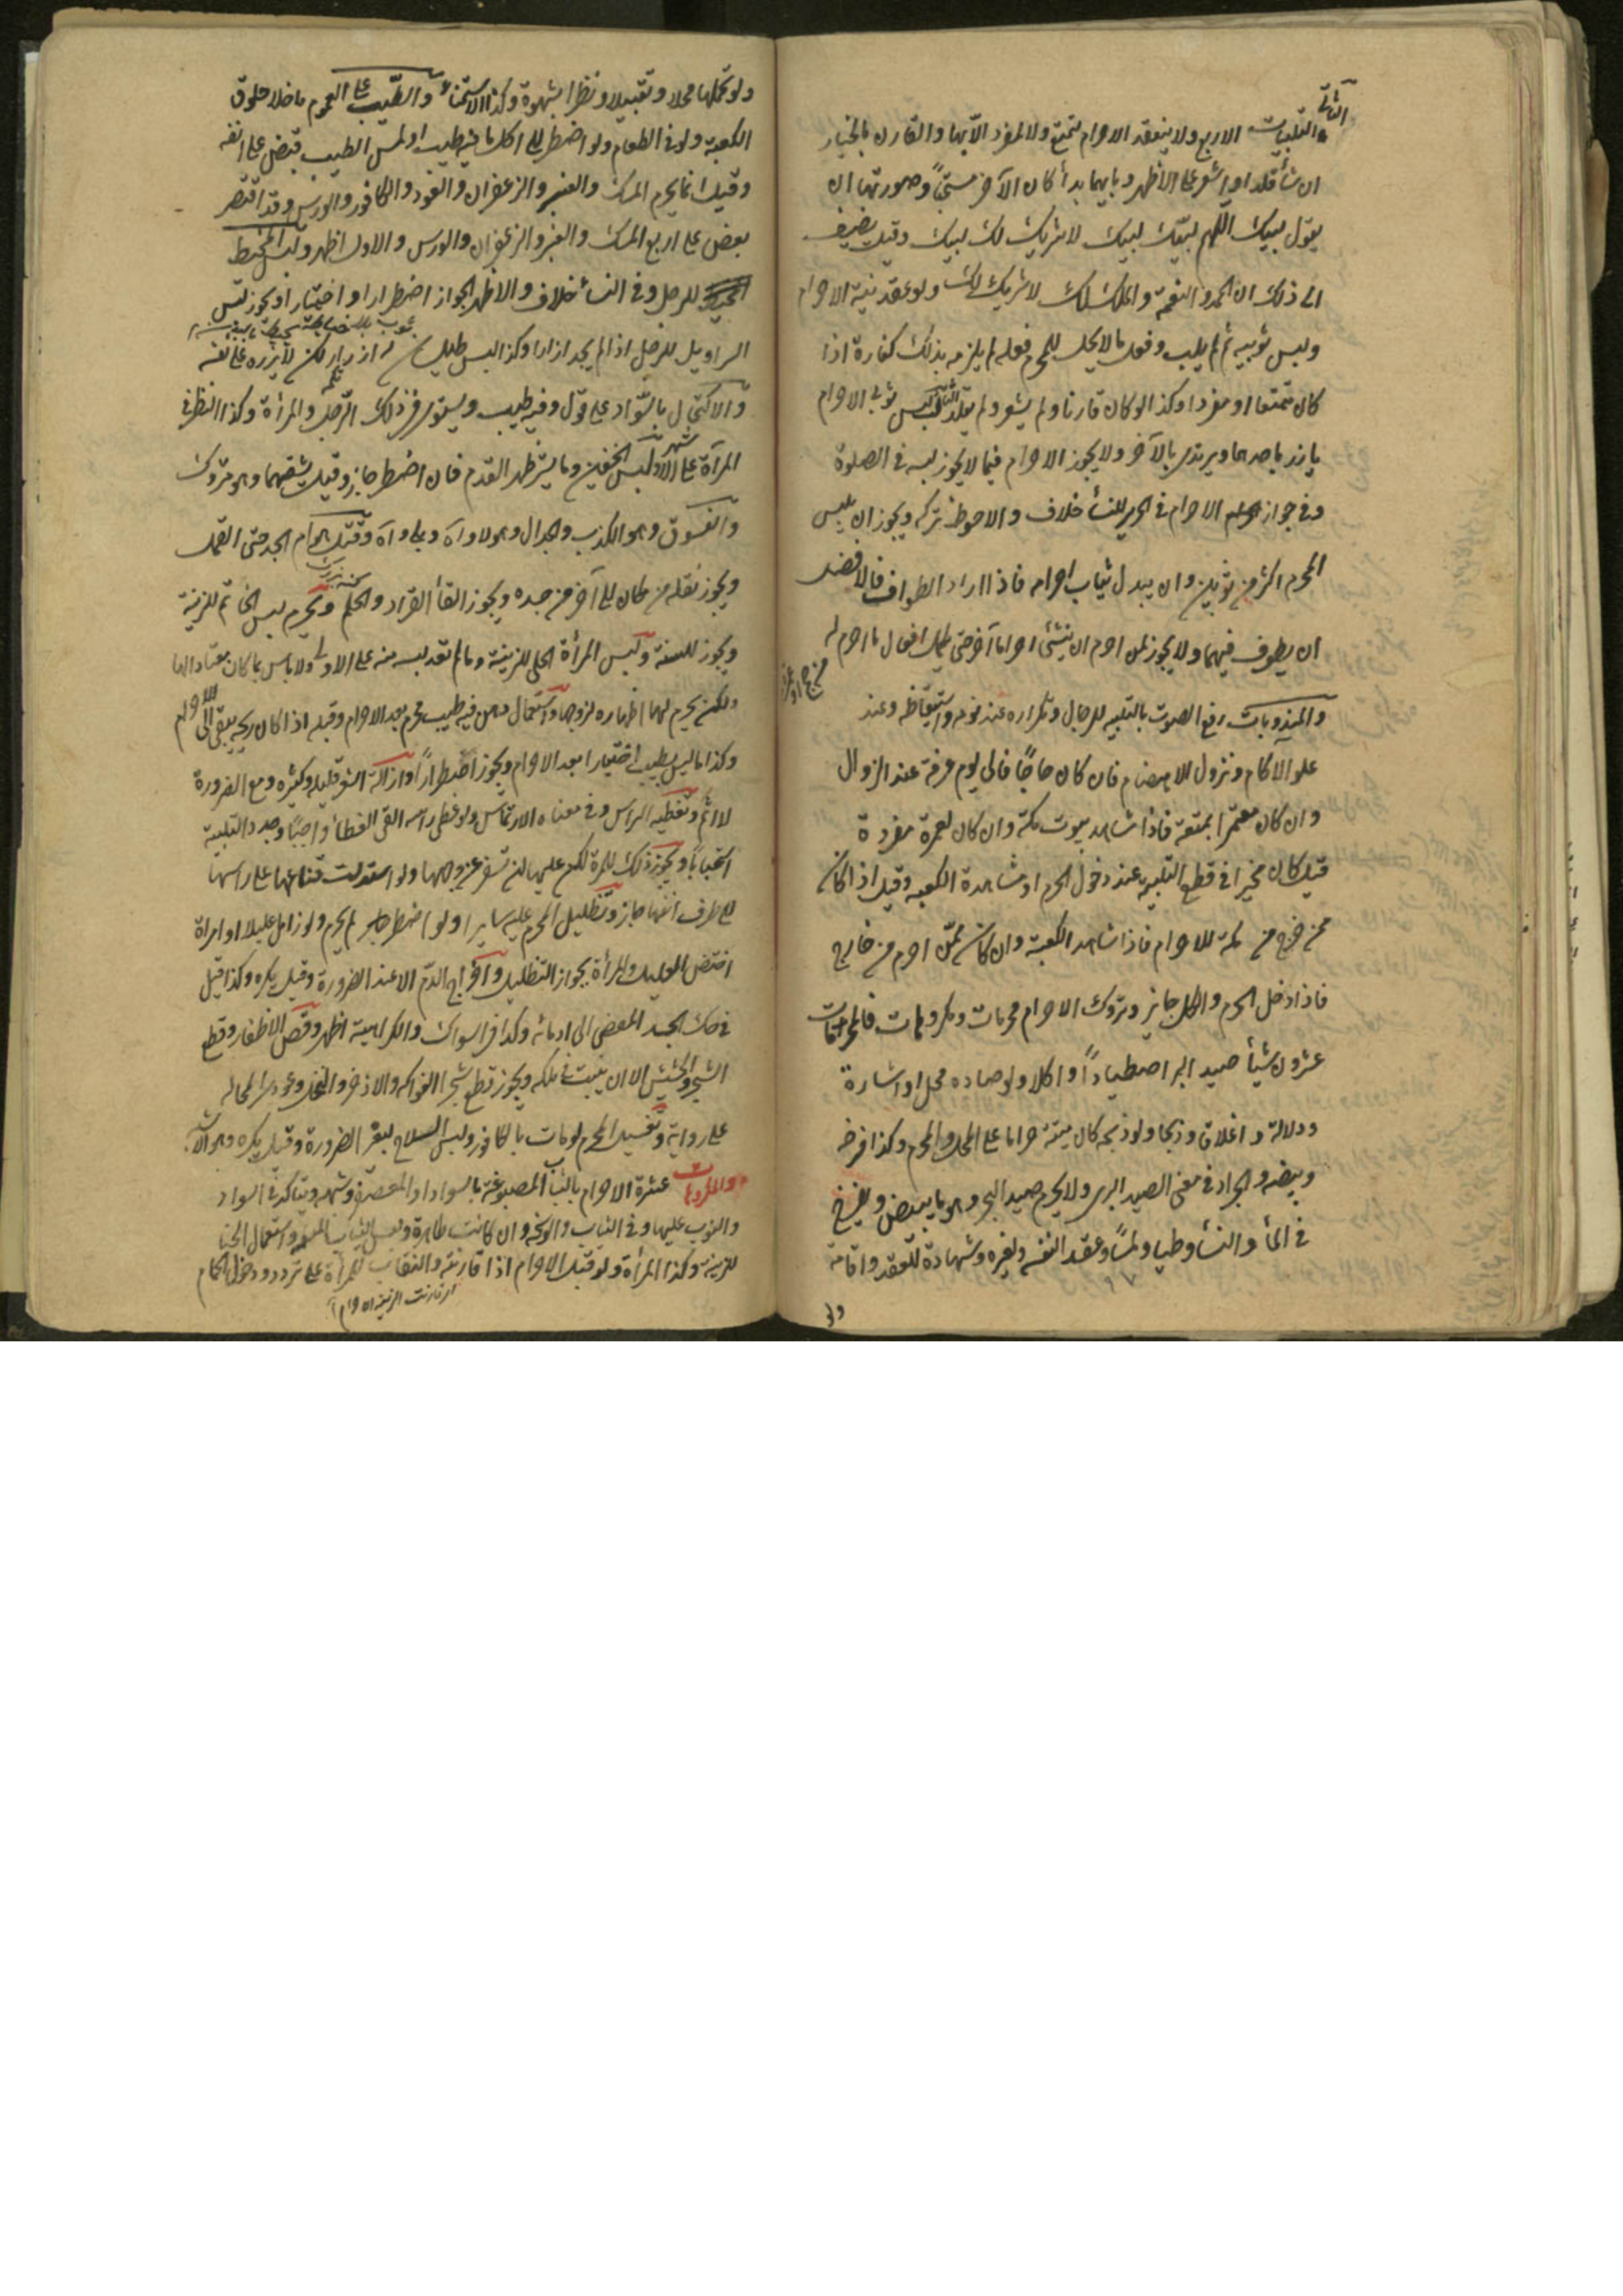 الثاني
التلبيات الاربع ولا ينعقد الاحرام لمتمتع ولا لمفرد الا بها والقارن بالخيار
ان شأ قلد او اشعر على الاظهر وبايهما بدأ كان الآخر مستحباً وصورتها ان
يقول لبيك اللهم لبيك لبيك لا شريك لك لبيك وقيل يضيف
الى ذلك ان الحمد والنعمة والملك لك لا شريك لك ولو عقد نية الاحرام
ولبس ثوبيه ثم لم يلب وفعل ما لا يحل للمحرم فعله لم يلزمه بذلك كفارة اذا
كان متمتعا او مفردا وكذا لو كان قارنا ولم يشعر ولم يقلد الثالث لبس ثوبي الاحرام
يأتزر باحدهما ويرتدى بالآخر ولا يجوز الاحرام فيما لا يجوز لبسه في الصلوة
وفي جواز الاحرام في الحرير للنسأ خلاف والاحوط تركه ويجوز ان يلبس
المحرم اكثر من ثوبين وان يبدل ثياب احرامه فاذا اراد الطواف فالافضل
ان يطوف فيهما ولا يجوز لمن احرم ان ينشئ احراما آخر حتى يكمل افعال ما احرم له
من حج او عمرة
والمندوبات رفع الصوت بالتلبيه للرجال وتكراره عند نومه واستيقاظه وعند
علو الآكام ونزول الاهضام فان كان حاجًا فالى يوم عرفة عند الزوال
وان كان معتمرا بمتعة فاذا شاهد بيوت مكة وان كان لعمرة مفردة
قيل كان مخيرا في قطع التلبيه عند دخول الحرم او مشاهدة الكعبه وقيل اذا كان
ممن خرج من مكة للاحرام فاذا شاهد الكعبة وان كان ممن احرم من خارج
فاذا دخل الحرم والكل جايز وتروك الاحرام محرمات ومكروهات فالمحرمات
عشرون شيأ صيد البر اصطياداً واكلا ولو صاده محل او اشارة
ودلالة واغلاق وذبحا ولو ذبحه كان ميتة حراما على المحل والمحرم وكذا فرخه
وبيضه والجراد في معنى الصيد البرى ولا يحرم صيد البحر وهو ما يبيض ويفرخ
في المأ والنسأ وطيا ولمسًا وعقد النفسه ولغيره وشهادة للعقد واقامة
ولو
ولو تحملها محلا وتقبيلا ونظرا بشهوة وكذا الاستمنأ والطيب على العموم ما خلا خلوق
الكعبة ولو في الطعام ولو اضطر الى اكل ما فيه طيب او لمس الطيب قبض على انفه
وقيل انما يحرم المسك والعنبر والزعفران والعود والكافور والورس وقد اقتصر
بعض على اربع المسك والعنبر والزعفران والورس والاول اظهر ولبس المخيط
للرجل وفي النسأ خلاف والاظهر الجواز اضطرارا واختيارا ويجوز لبس
السراويل للرجل اذا لم يجد ازارا وكذا لبس طيلسان له ازرار لكن لا يزره على نفسه
والاكتحال بالسواد على قول وفيه طيب ويستوي في ذلك الرجل والمرأة وكذا النظر في
المرآة على الاشهر ولبس الخفين وما يستر ظهر القدم فان اضطر جاز وقيل يشقهما وهو متروك
والفسوق وهو الكذب والجدال وهو لا والله وبلى والله وقتل هوام الجسد حتى القمل
ويجوز نقله من مكان الى آخر من جسده ويجوز القأ القراد والحلم ويحرم لبس الخاتم للزينة
ويجوز للسنة ولبس المرأة الحلى للزينة وما لم تعتد لبسه منه على الاولى ولا باس بما كان معتادا لها
ولكن يحرم لها اظهاره لزوجها واستعمال دهن فيه طيب محرم بعد الاحرام وقبله اذا كان ريحه يبقى الى الاحرام
وكذا ما ليس بطيب اختيارا بعد الاحرام ويجوز اضطراراً وازالة الشعر قليله وكثيره ومع الضرورة
لا اثم وتغطيه الراس وفي معناه الارتماس ولو غطى راسه القى الغطأ واجبًا وجدد التلبية
استحباباً ويجوز ذلك للمرة لكن عليها ان تسفر عن وجهها ولو اسدلت قناعها على راسها
الى طرف انفها جاز وتظليل المحرم عليه سايرا ولو اضطر لم يحرم ولو زامل عليلا او امراة
اختص العليل والمرأة بجواز التظليل واخراج الدم الا عند الضرورة وقيل يكره وكذا قيل
في حك الجسد المفضى الى ادمائه وكذا في السواك والكراهية اظهر وقص الاظفار وقطع
الشجر والحشيش الا ان ينبت في ملكه ويجوز قطع شجر الفواكه والاذخر والنخل وعودى المحاله
على رواية وتغسيل المحرم لو مات بالكافور ولبس السلاح لغير الضرورة وقيل يكره وهو الاشبه
والمكروهات عشرة الاحرام بالثياب المصبوغة بالسواد او المعصفر وشبهه ويتاكد في السواد
والنوم عليها وفي الثياب الوسخه وان كانت طاهرة ولبس الثياب المعلمه واستعمال الحنا
للزينة وكذا المرأة ولو قبل الاحرام اذا قارنته والنقاب للمرأة على تردد ودخول الحمام